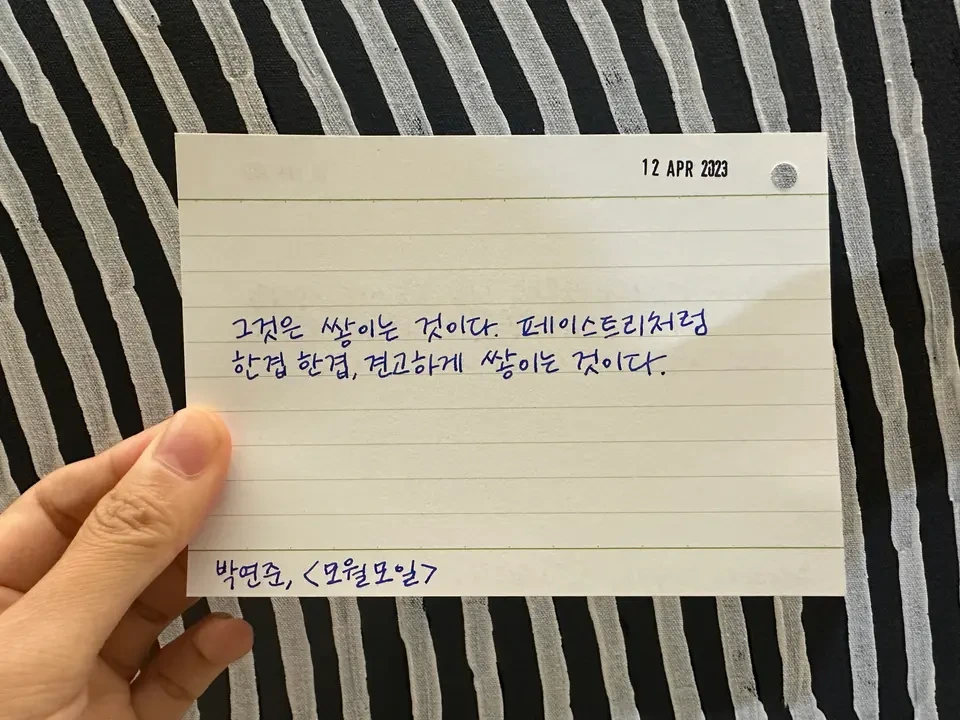 12 APR 2023
그것은 쌓이는 것이다. 페이스트리처럼
한겹 한겹, 견고하게 쌓이는 것이다.
박연준, <모월모일>